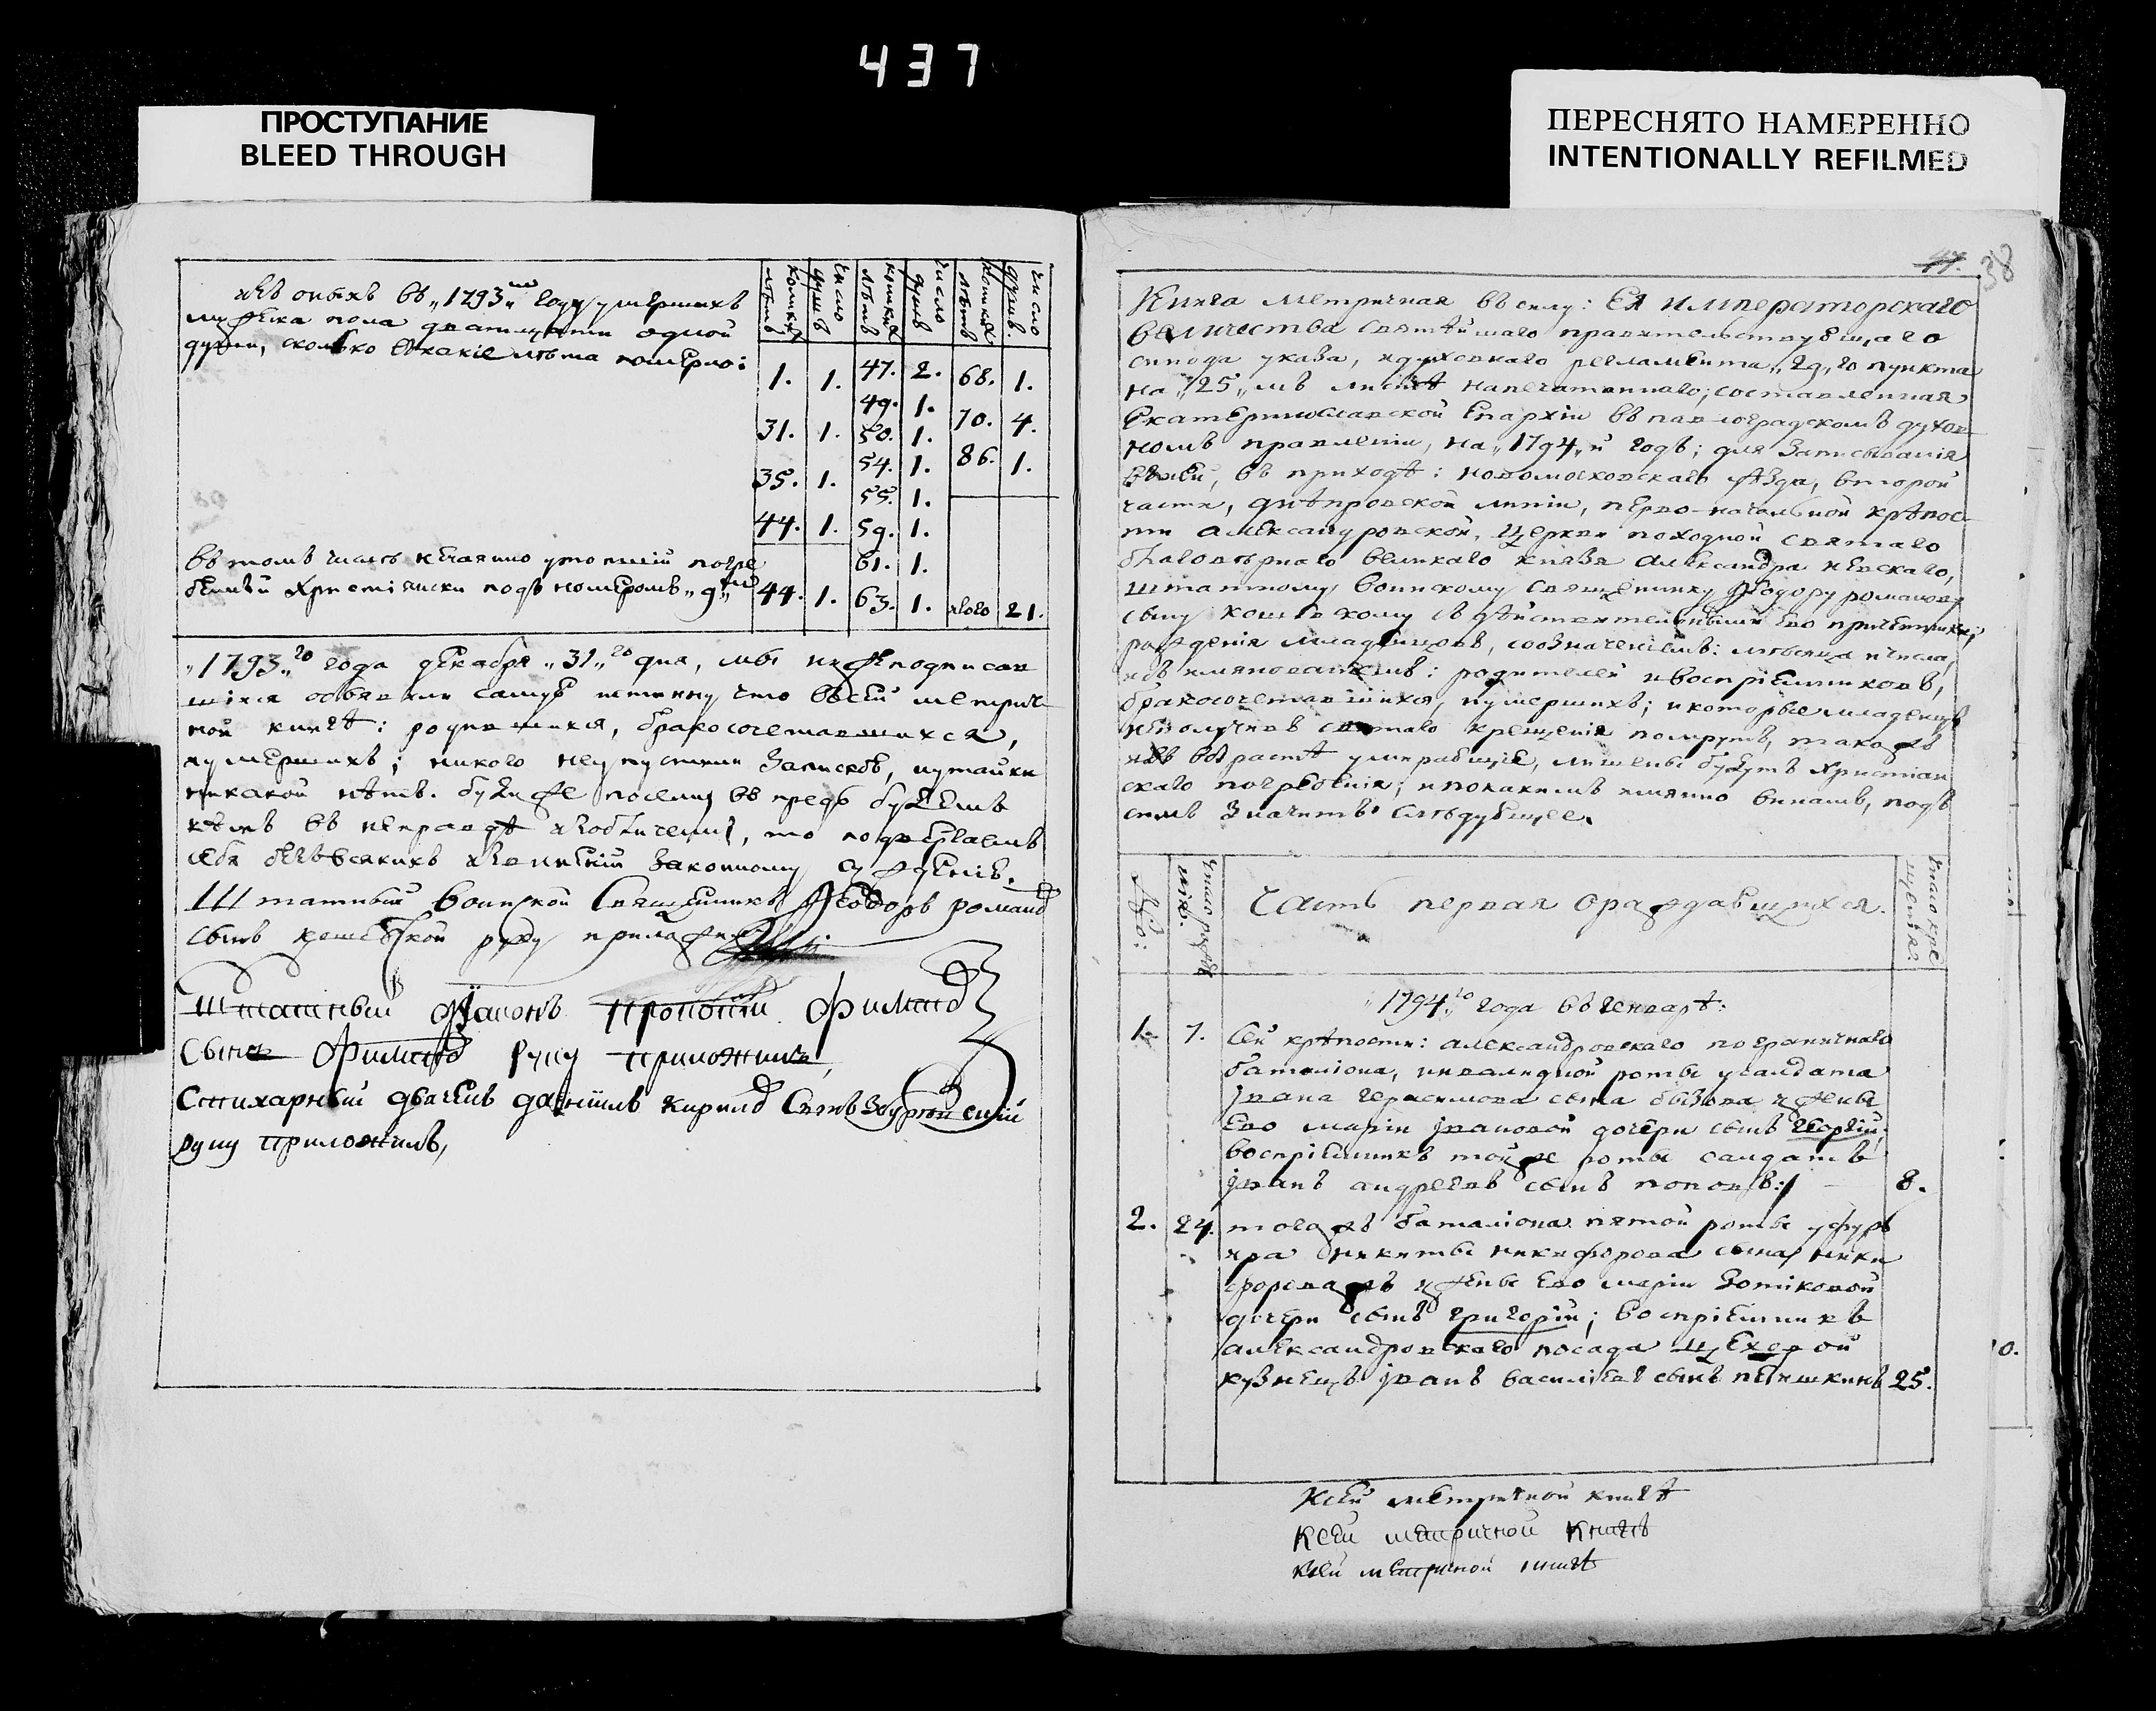 437
ПРОСТУПАНИЕ
BLEED THROUGH
ПЕРЕСНЯТО НАМЕРЕННО
INTENTIONALLY REFILMED
изъ оныхъ въ „1793„мъ году умершихъ
мужеска пола дватцати одной
души, сколько въ какіе лѣта померло:
коликихъ лѣтъ
число душъ
коликихъ лѣтъ
число душъ
коликихъ лѣтъ
число душъ.
1. 1. 47. 2. 68. 1.
49. 1.
31. 1. 50. 1. 70. 4.
54. 1. 86. 1.
35. 1. 55. 1.
44. 1. 59. 1.
въ томъ числѣ нечаянно утопшій погре
61. 1.
бенный христіянски подъ номеромъ „9„мъ 44. 1. 63. 1. итого 21.
„1793„го года декабря „31„го дня, мы нижеподписав
шіяся объявили самую истинну что въ сей метрич
ной книгѣ: родившихся, бракосочетавшихся,
и умершихъ; никого не упустили записавъ, и утайки
никакой нѣтъ. будиже послѣ въ предь будемъ
кѣмъ въ неправдѣ изобличены, то подвергаемъ
себя безъ всякихъ извиненій законному сужденію.
Штатный воинской Священникъ Ѳеодоръ романовъ
сынъ руку приложилъ
Штатный Филипъ
Сынъ Филиповъ руку приложилъ,
Стихарный дьячекъ даніилъ кириловъ Сынъ
руку приложилъ,
44. 38
Книга метричная въ силу: Ея императорскаго
величества Святѣйшаго правительствующаго
синода указа, и духовнаго регламента „29„го пункта
на „25„мъ листѣ напечатаннаго; составленная
Екатеринославской Епархіи въ павлоградскомъ духов
номъ правленіи, на „1794„й годъ; для записыванія
въ ней, въ приходѣ: новомосковскаго уѣзда, второй
части, днѣпровской линіи, перво-начальной крѣпос
ти александровской, церкви походной святаго
благовѣрнаго великаго князя александра невскаго,
штатному воинскому священнику Ѳеодору романову
сыну съ дѣйствительными его причетники;
рожденія младенцовъ, со означеніемъ: мѣсяца и числа,
и съ имянованіемъ: родителей и воспріемниковъ,
бракосочетавшихся, и умершихъ; и которые младенцы
неполучивъ святаго крещенія помрутъ, такожъ
и въ возрастѣ умирающіе, лишены будутъ христіан
скаго погребенія; и по какимъ имянно винамъ, подъ
симъ значитъ слѣдующее.
число рожде нія.
Часть первая о раждающихся.
число кре щенія.
„1794„го года въ генварѣ:
1. 7. Сей крѣпости: александровскаго пограничнаго
баталіона, инвалидной роты у салдата
Iвана герасимова сына бызова и жены
Его маріи Iвановой дочери сынъ георгій;
воспріемникъ тойже роты салдатъ
Iванъ андреевъ сынъ поповъ: 8.
2. 24. тогожъ баталіона пятой роты у фурь
ера никиты никифорова сына, ники
форова жъ и жены Его маріи Зотиковой
дочери сынъ григорій; воспріемникъ
александровскаго посада цеховой
кузнецъ Iванъ васильевъ сынъ 25.
10.
Ксей метричной книгѣ
Ксей метричной книгѣ
Ксей метричной книгѣ